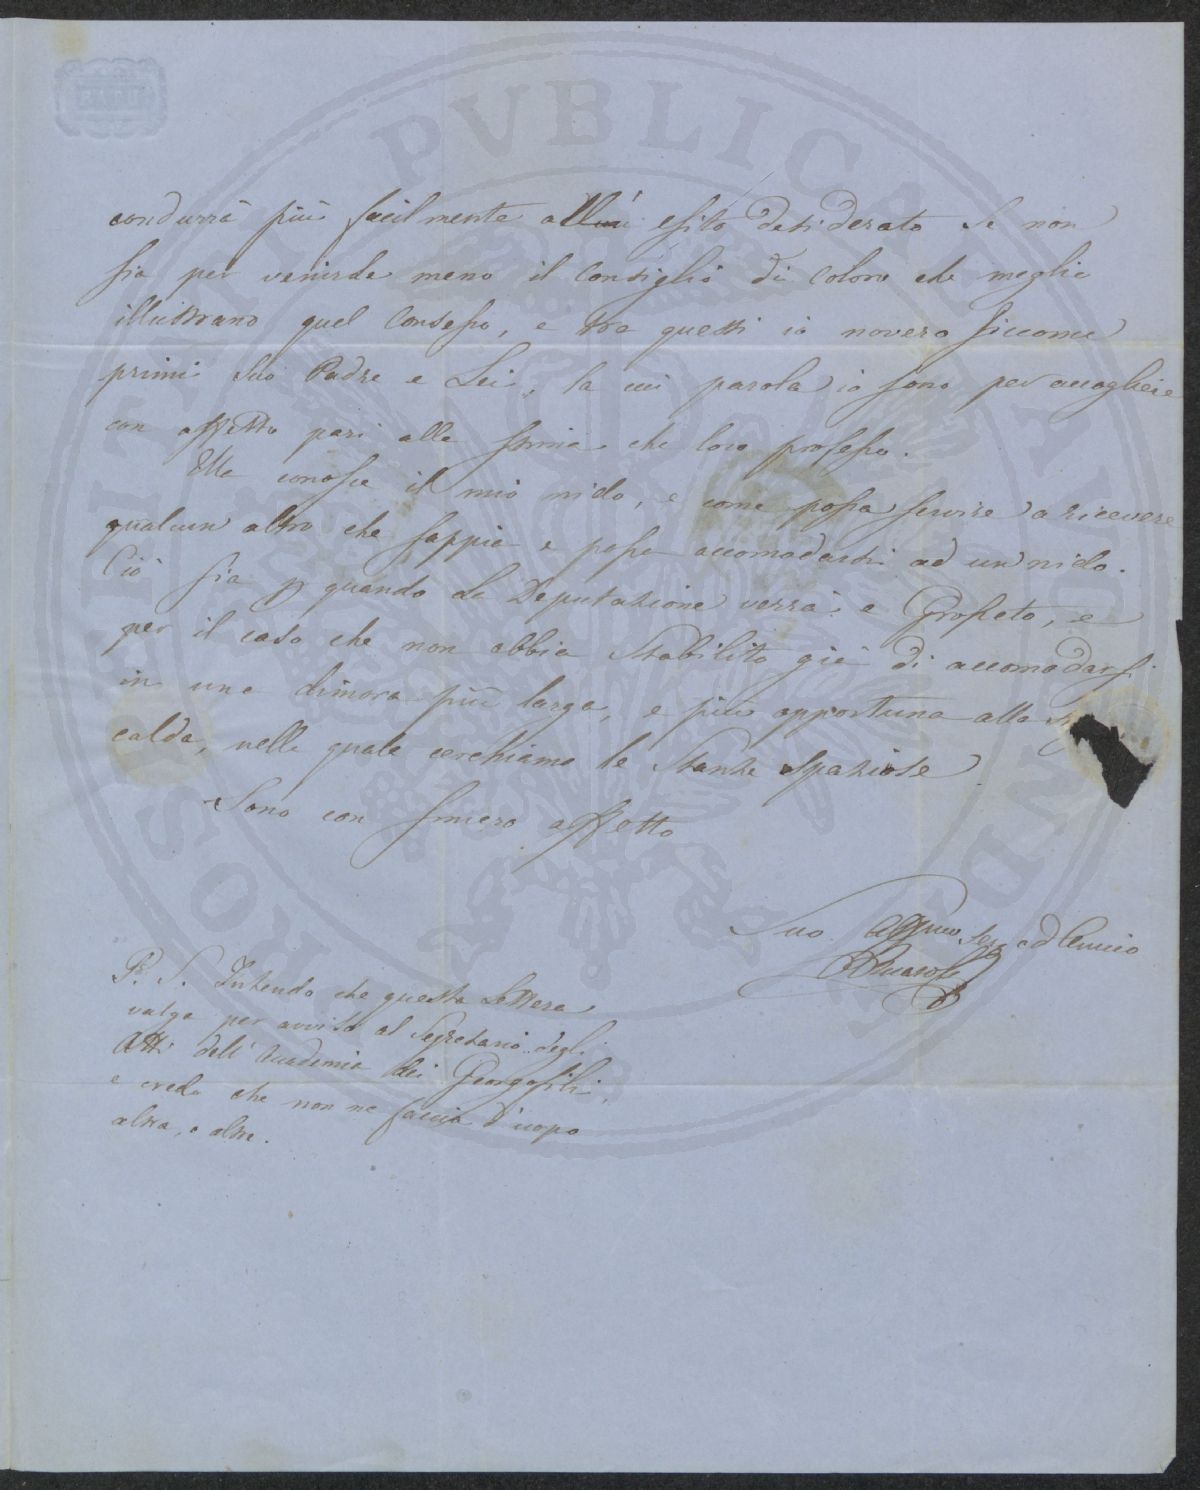 condurrà più facilmente all' esito desiderato se non
sia per venirde meno il Consiglio di coloro che meglio
illustrano quel Consesso, e tra questi io novero siccome
primi suo Padre e Lei, la cui parola io sono per accogliere
con affetto pari alla stima che loro professo.
Ella conosce il mio nido, e come possa servire a ricevere
qualcun altro che sappia e possa accomodarsi ad un nido.
Ciò sia p quando la Deputazione verrà a Grosseto, e
per il caso che non abbia stabilito già di accomodarsi
in una dimora più larga, e più opportuna alla
calda, nella quale cerchiamo le stanze spaziose
Sono con sincero affetto
Suo affmo ed Amico
BRicasoli
P. S. Intendo che questa Lettera
valga per avviso al Segretario degli
Atti dell' Accademia dei Georgofili,
e credo che non ne faccia d'uopo
altra, o altre.
PROSPERITATI PVBLICAE AVGENDAE